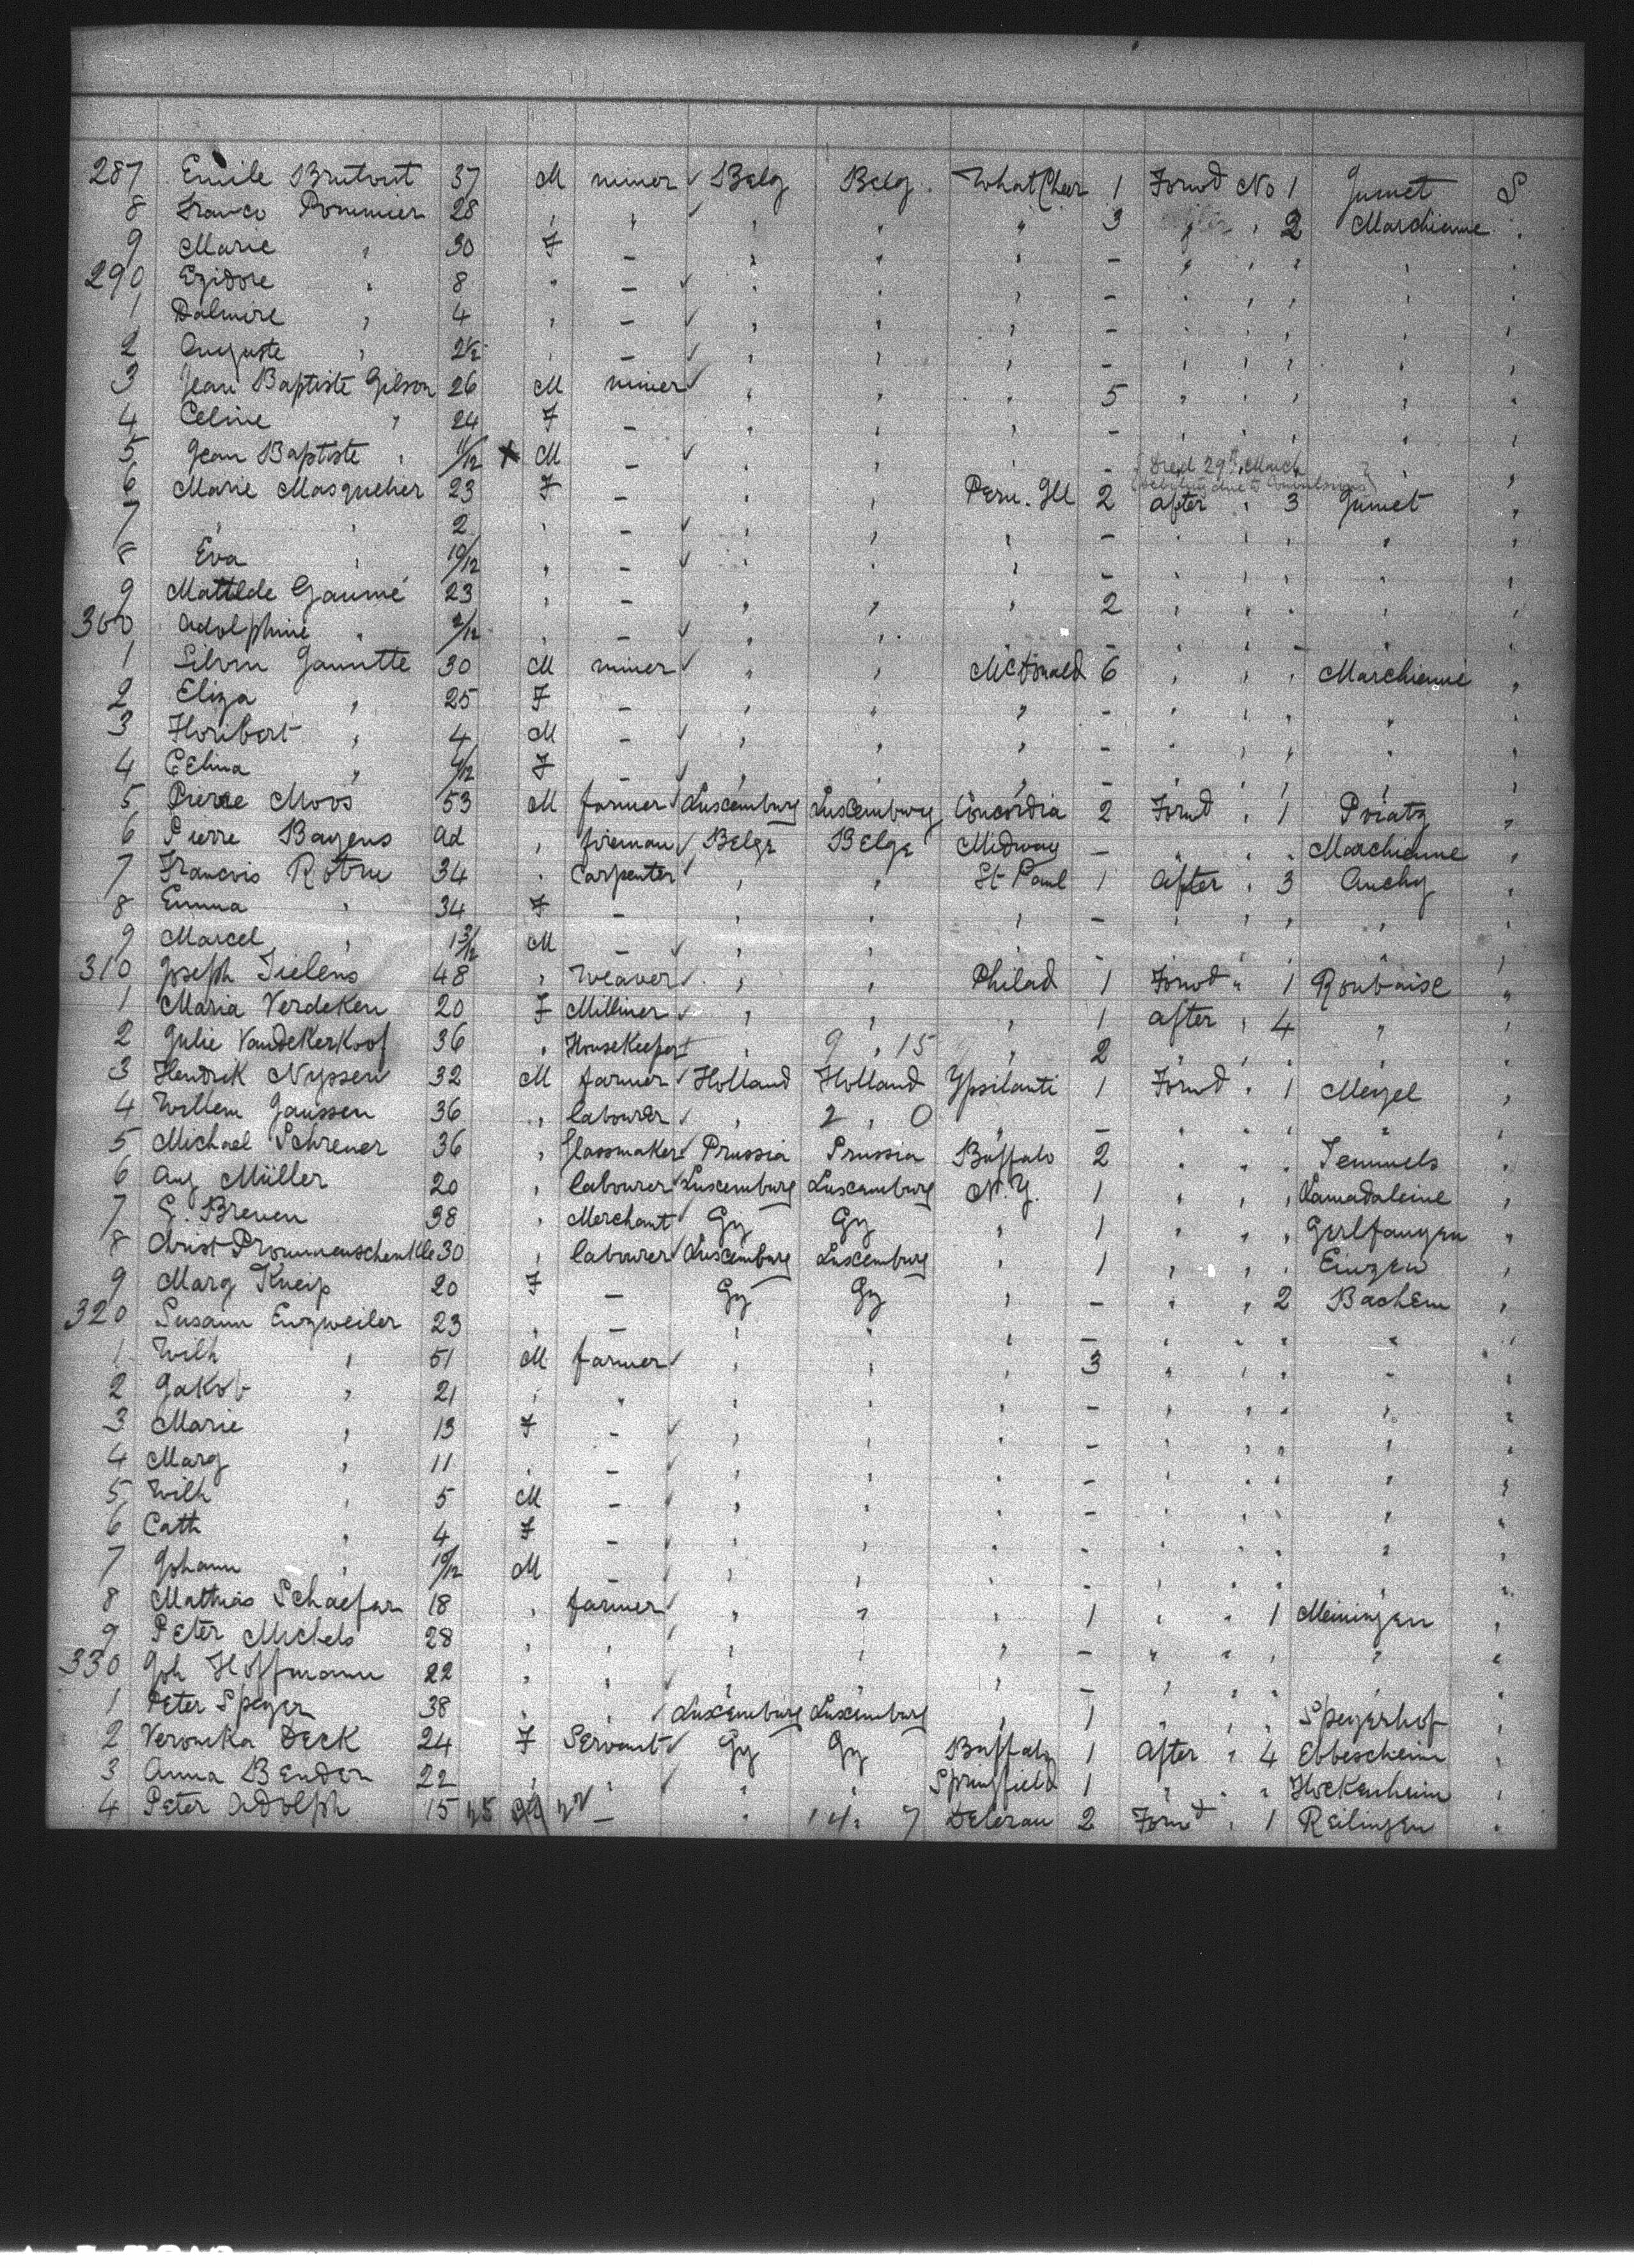 287 Emile Brutout 37 M miner Belg Belg. What Cheer 1 Forwd No 1 Jumet S
8 Franco Pommier 28 " " " " " 3 " " 2 Marchienne "
9 Marie " 30 F - " " " - " " " " "
290 Ezidore " 8 " - " " " - " " " " "
1 Dalmire " 4 " - " " " - " " " " "
2 Auguste " 2½ " - " " " - " " " " "
3 Jean Baptiste Gilson 26 M miner " " " 5 " " " " "
4 Celine " 24 F - " " " - " " " " "
5 Jean Baptiste " 11/12 X M - " " " - " "
{Died 29th March
debility due to Convulsions}
6 Marie Masquelier 23 F - " " Peru. Ill 2 after " 3 Jumet "
7 " " 2 " - " " " - " " " " "
8 Eva " 10/12 " - " " " - " " " " "
9 Matilde Gaumé 23 " - " " " 2 " " " " "
300 Adolphine " 2/12 " - " " " - " " " " "
1 Silvin Gaunitte 30 M miner " " McDonald 6 " " " Marchienne "
2 Eliza " 25 F - " " " - " " " " "
3 Floribert " 4 M - " " " - " " " " "
4 Celina " 4/12 F - " " " - " " " " "
5 Pierre Moos 53 M farmer Luxemburg Luxemburg Concordia 2 Forwd " 1 Priatz "
6 Pierre Bayens ad " fireman Belge Belge Midway - " " " Marchienne "
7 Francois Rotru 34 " Carpenter " " St Paul 1 After " 3 Auchy "
8 Emma " 34 F - " " " - " " " " "
9 Marcel " 1 3/12 M - " " " - " " " " "
310 Joseph Tielens 48 " Weaver " " Philad 1 Forwd " 1 Roubaise "
1 Maria Verdeken 20 F Milliner " " " 1 after " 4 " "
2 Julie VandeKerkoof 36 " Housekeeper " 9 " 15 " 2 " " " " "
3 Hendrik Nyssen 32 M farmer Holland Holland Ypsilanti 1 Forwd " 1 Meyel "
4 Willem Janssen 36 " labourer " 2 " 0 " - " " " " "
5 Michael Schreuer 36 " Glassmaker Prussia Prussia Buffalo 2 " " " Temmels "
6 Aug Müller 20 " labourer Luxemburg Luxemburg N.Y. 1 " " " Lamadaleine "
7 G. Breuen 38 " Merchant Gy Gy " 1 " " " Gerlfangen "
8 Christ Prommenschenkle 30 " labourer Luxemburg Luxemburg " 1 " " " Einzen "
9 Marg Kneip 20 F - Gy Gy " - " " 2 Bachem "
320 Susann Enzweiler 23 " - " " " - " " " " "
1 Wilh " 51 M farmer " " " 3 " " " " "
2 Jakob " 21 " " " " " - " " " " "
3 Marie " 13 F - " " " - " " " " "
4 Marg " 11 " - " " " - " " " " "
5 Wilh " 5 M - " " " - " " " " "
6 Cath " 4 F - " " " - " " " " "
7 Johann " 10/12 M - " " " - " " " " "
8 Mathias Schaefer 18 " farmer " " " 1 " " 1 Meiningen "
9 Peter Michels 28 " " " " " - " " " " "
330 Joh Hoffmann 22 " " " " " - " " " " "
1 Peter Speyer 38 " " Luxemburg Luxemburg " 1 " " " Speyerhof "
2 Veronika Deck 24 F Servant Gy Gy Buffalo 1 After " 4 Ebbesheim "
3 Anna Bender 22 " " " " Springfield 1 " " " Hockenheim "
4 Peter Adolph 15 - " 14 " 7 Deleran 2 Forwd " 1 Reilingen "